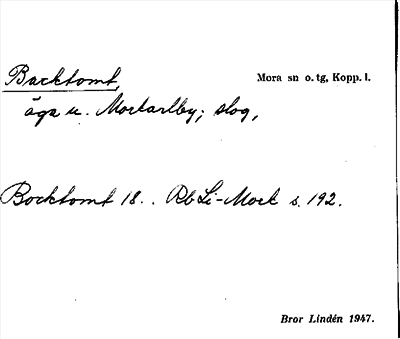 Backtomt, Mora sn o. tg, Kopp. l.
äga u. Morkarlby; slog,
Bocktomt 18. . Rb Li-Mock s. 192.
Bror Lindén 1947.